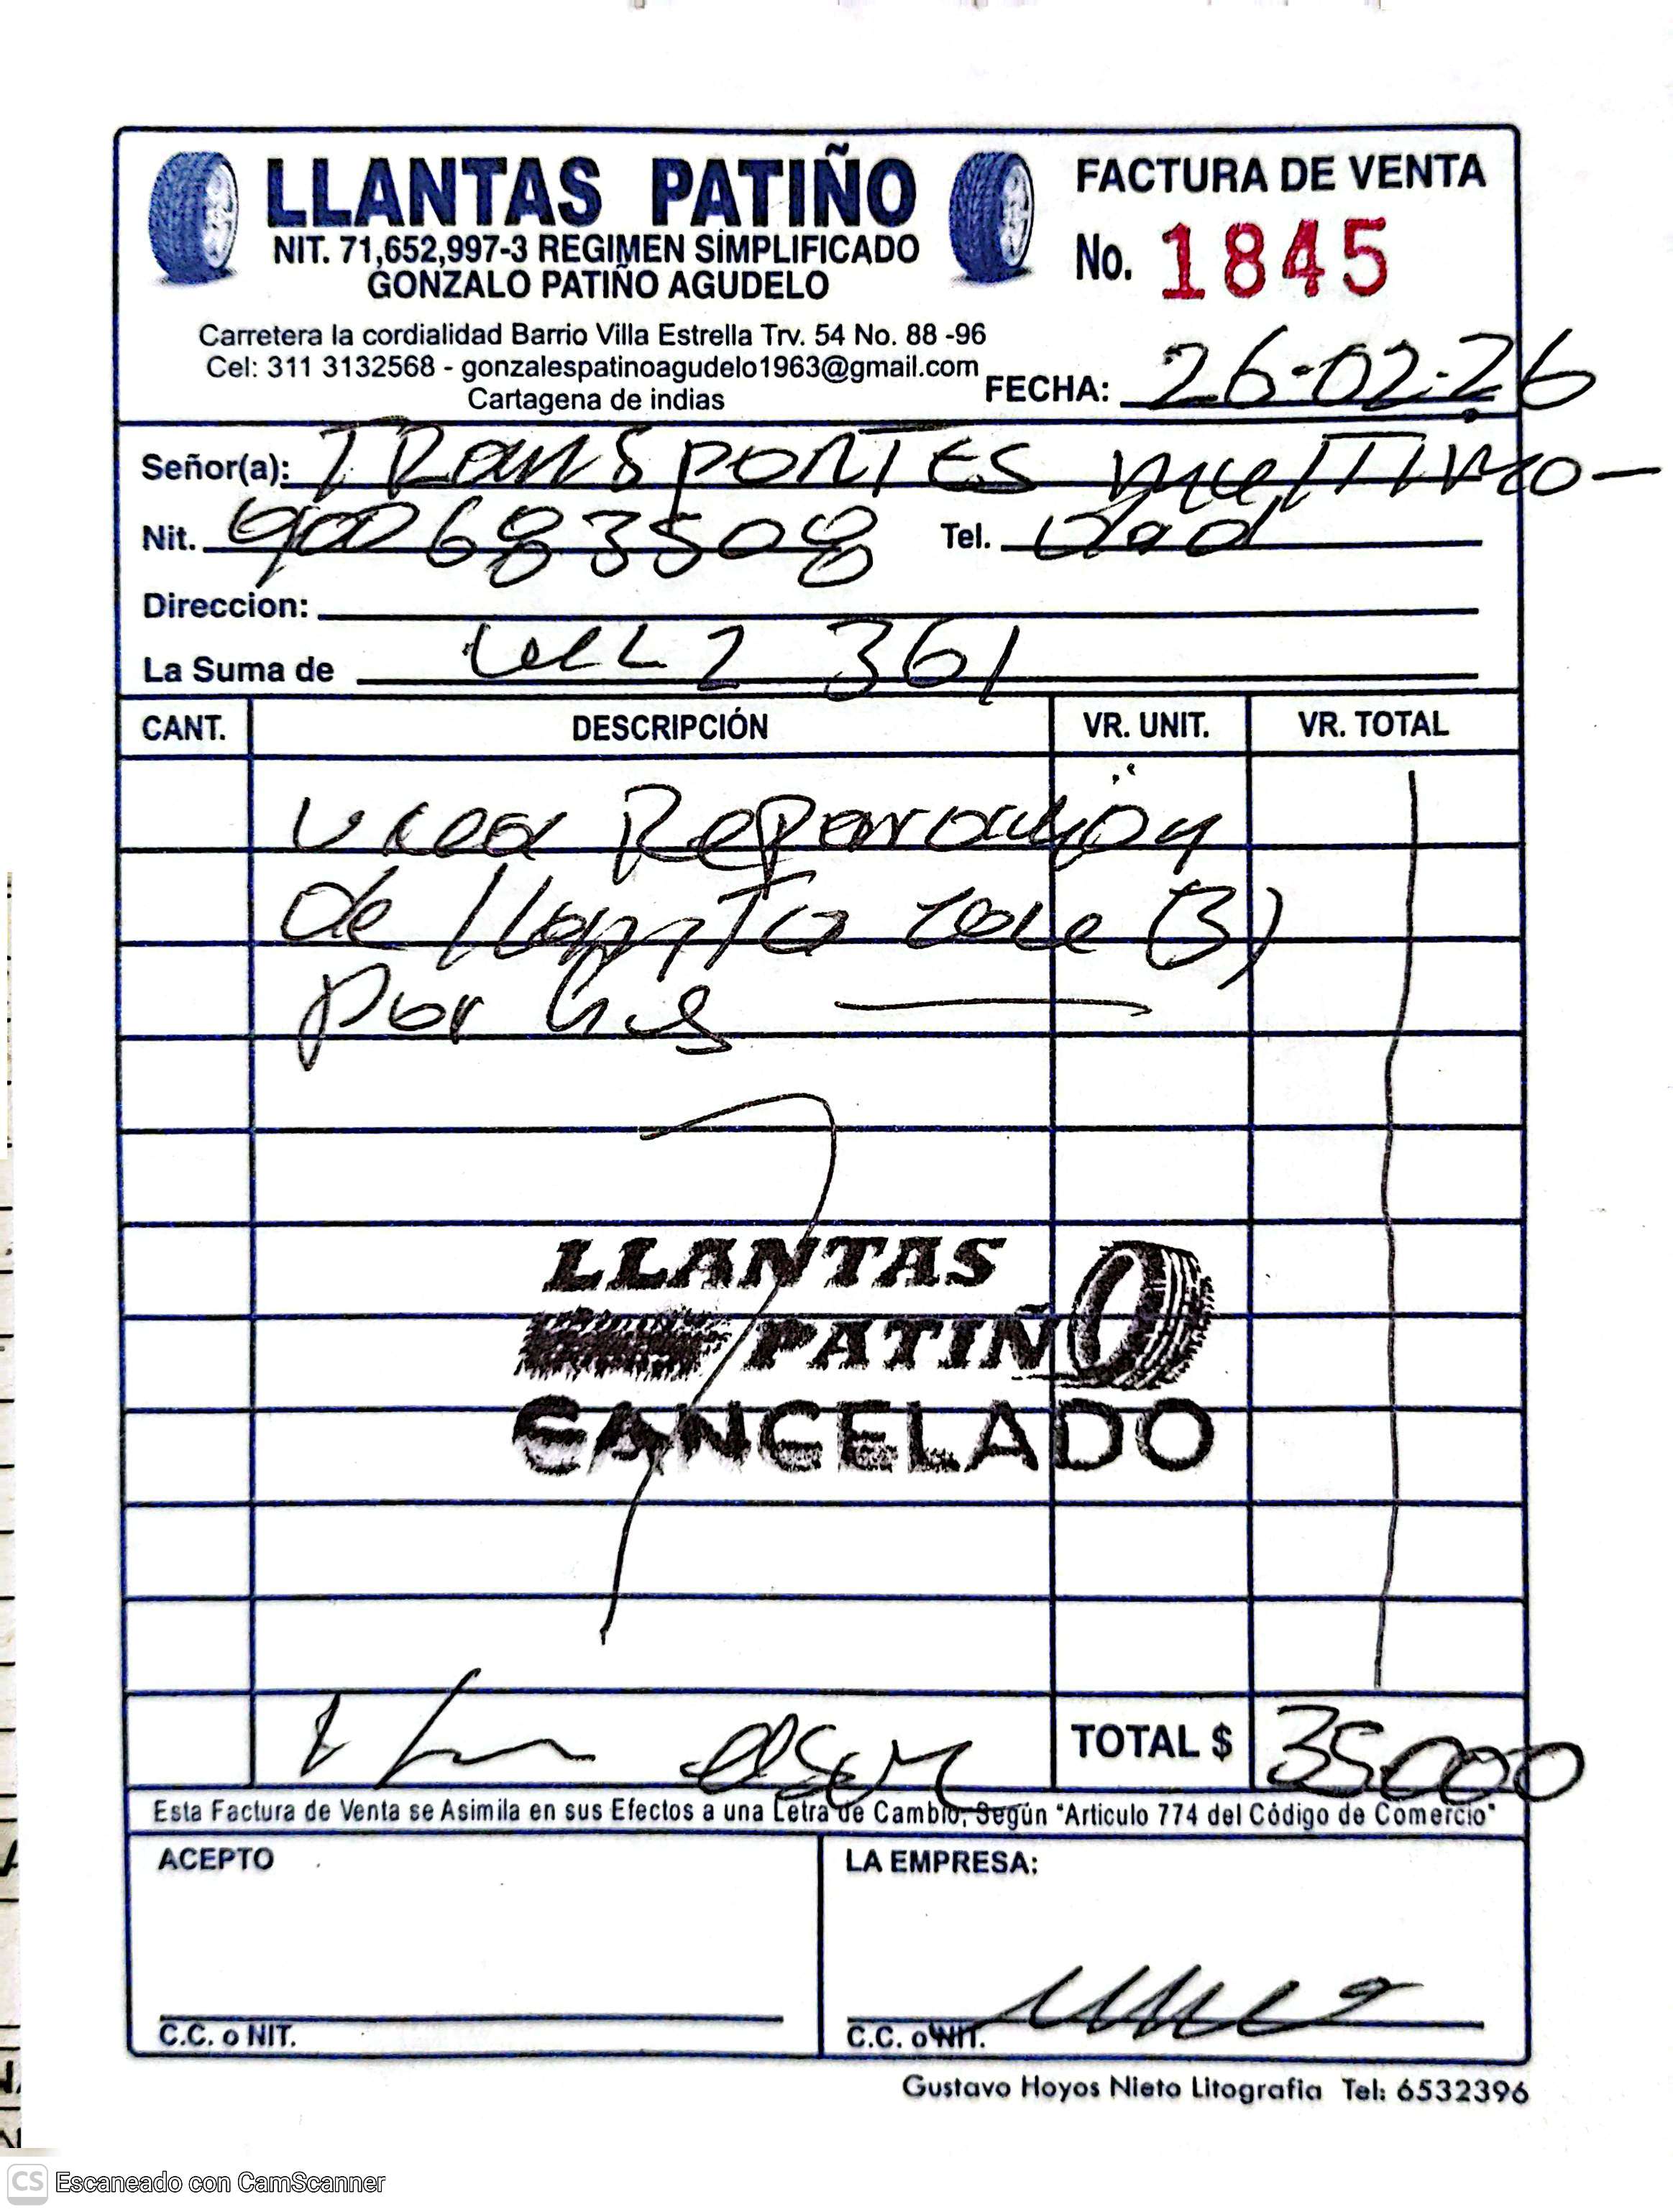 LLANTAS PATIÑO
NIT. 71,652,997-3 REGIMEN SIMPLIFICADO
GONZALO PATIÑO AGUDELO
Carretera la cordialidad Barrio Villa Estrella Trv. 54 No. 88 -96
Cel: 311 3132568 - gonzalespatinoagudelo1963@gmail.com
Cartagena de indias
FACTURA DE VENTA
No. 1845
FECHA: 26-02-26
Señor(a): TRANSPORTES multimo-
Nit. 900683508 Tel. dad
Direccion:
La Suma de 361
CANT. DESCRIPCIÓN VR. UNIT. VR. TOTAL
una Reparación
de llanta (3)
por
LLANTAS
PATIÑO
CANCELADO
TOTAL $ 35000
Esta Factura de Venta se Asimila en sus Efectos a una Letra de Cambio, Según "Articulo 774 del Código de Comercio"
ACEPTO
C.C. o NIT.
LA EMPRESA:
C.C. o NIT.
Gustavo Hoyos Nieto Litografia Tel: 6532396
CS Escaneado con CamScanner